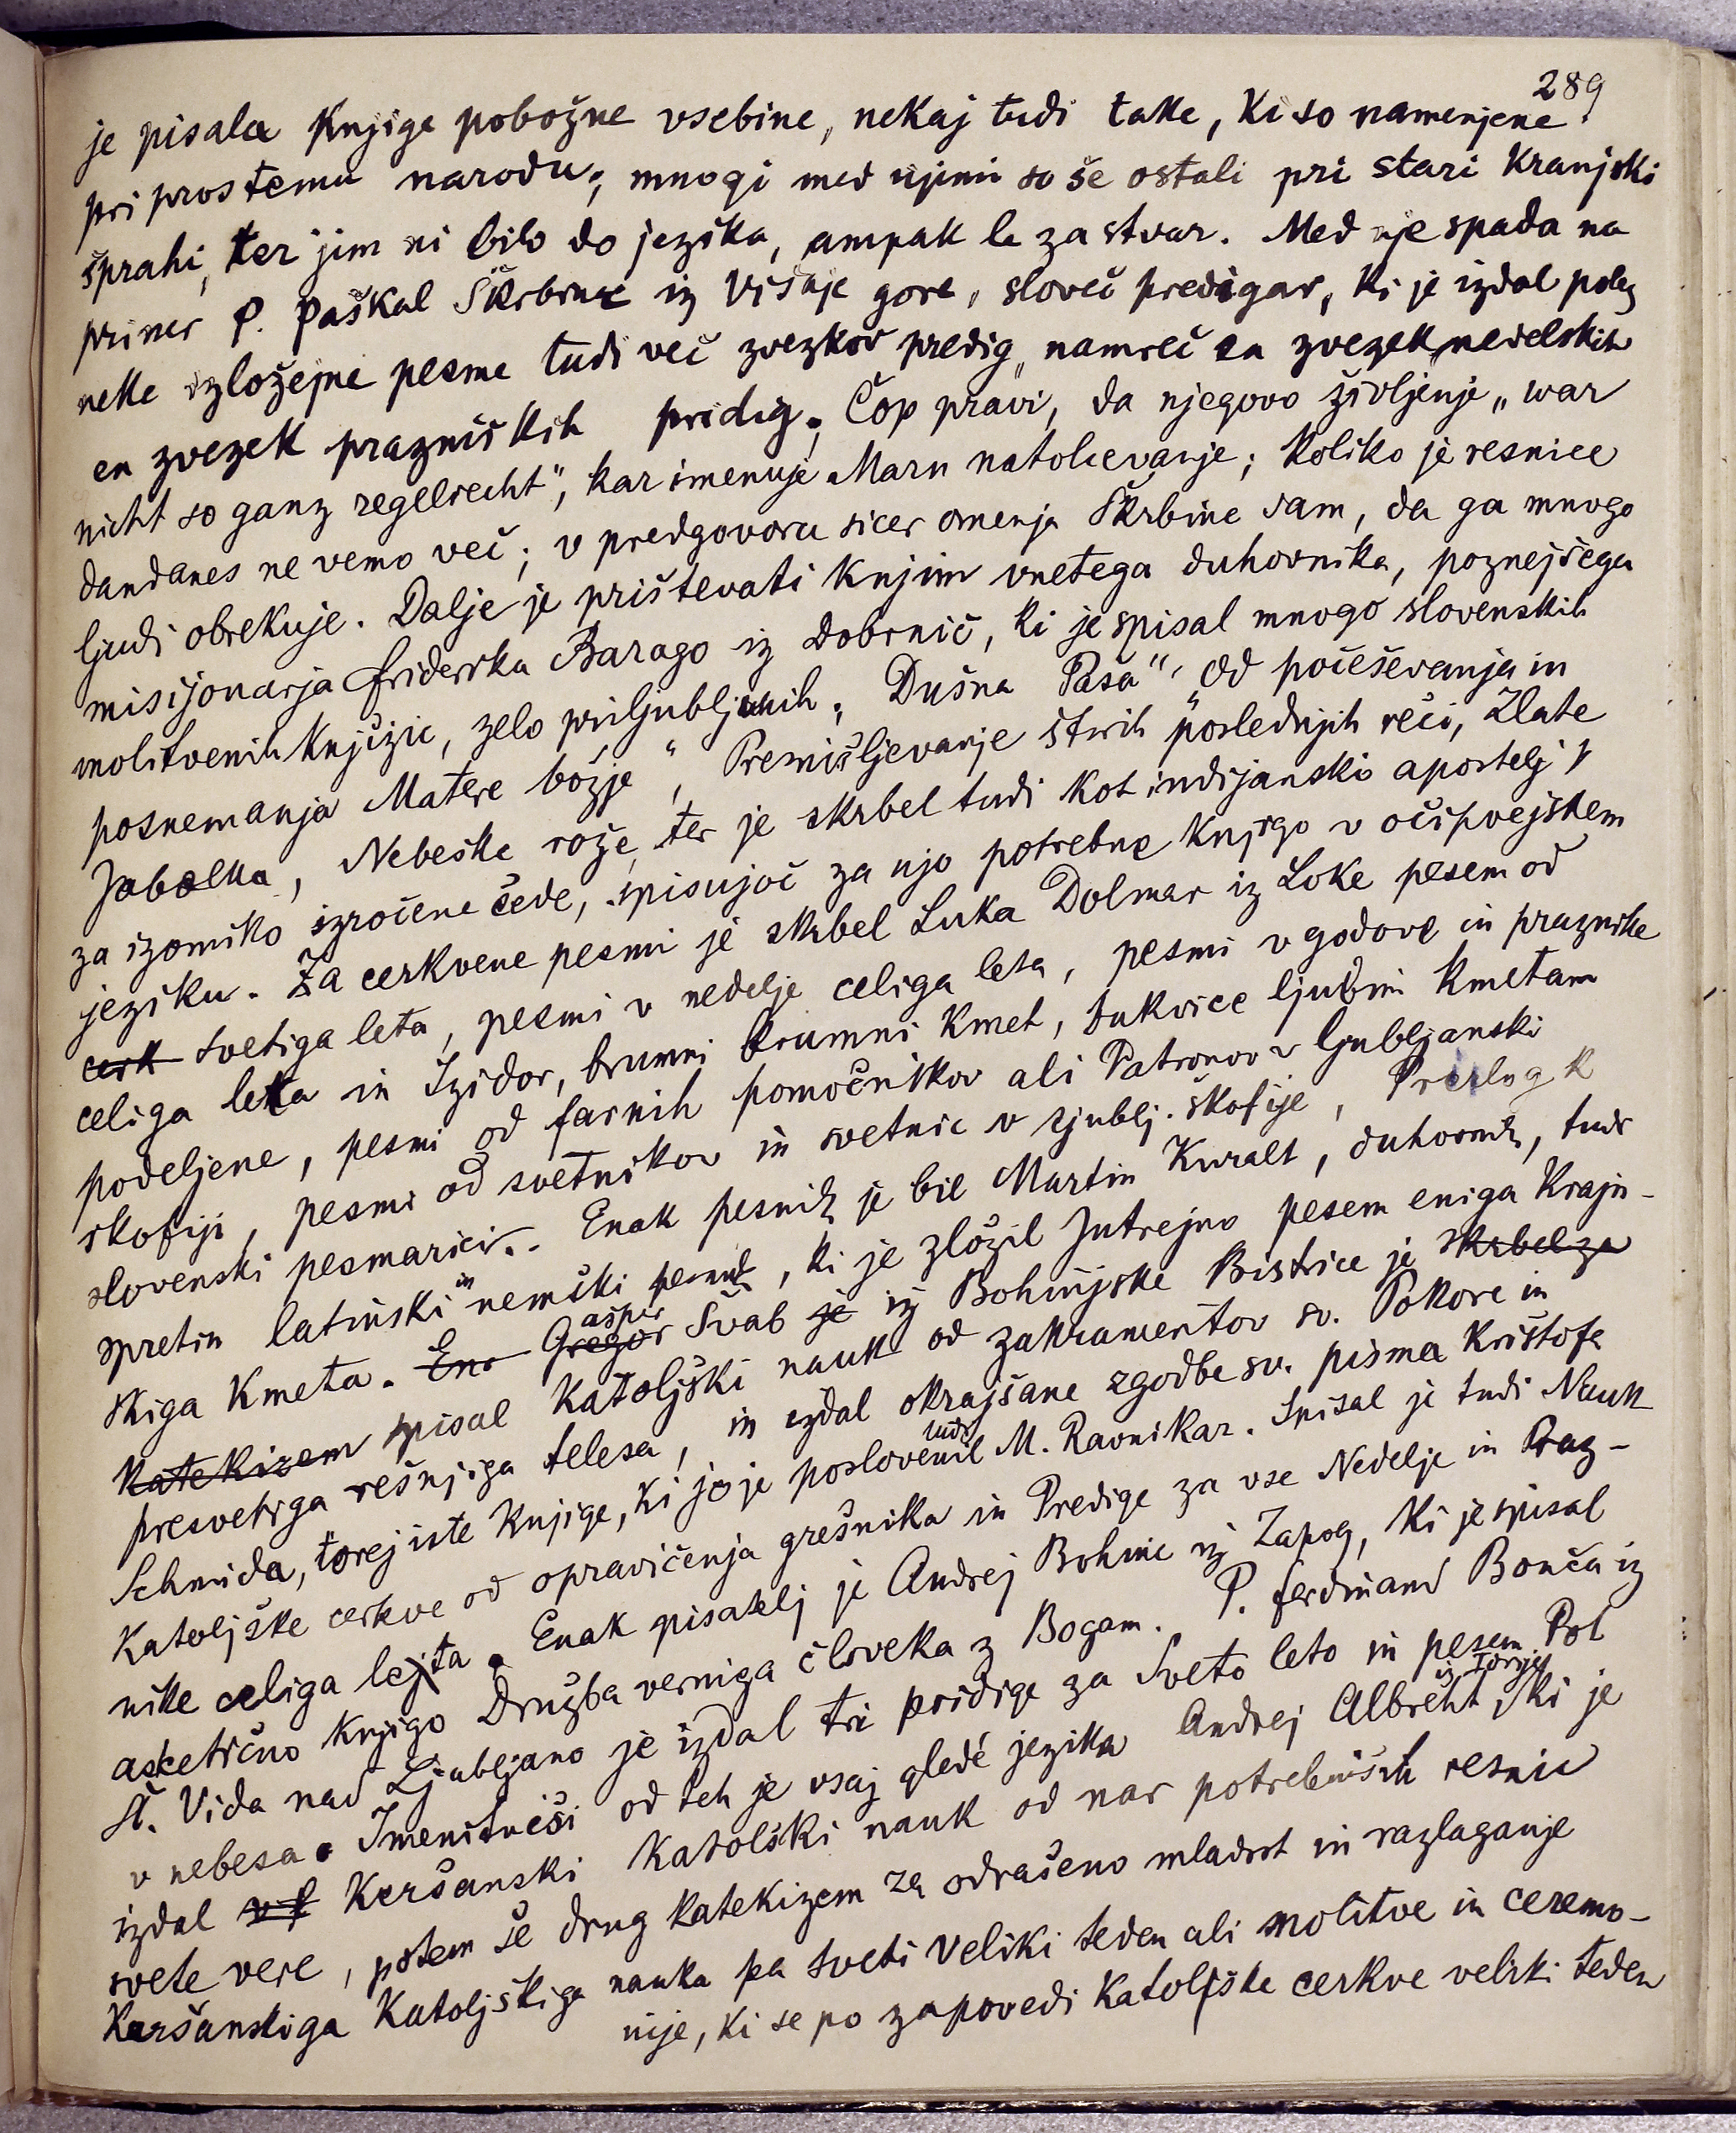 289
je pisala knjige pobožne vsebine, nekaj tudi take, ki so namenjene
priprostemu narodu; mnogi med njimi so še ostali pri stari kranjski
šprahi, ter jim ni bilo do jezika, ampak le za stvar. Med nje spada na
primer P. Paškal Škrbinc iz Višnje gore, sloveč predigar, ki je izdal poleg
neke izložejne pesme tudi več zvezkov predig, namreč en zvezek nedelskih
en zvezek prazniških pridig. Čop pravi, da njegovo življenje „war
nicht so ganz regelrecht“, kar imenuje Marn natolcevanje; koliko je resnice
dandanes ne vemo več; v predgovoru sicer omenja Škrbinc sam, da ga mnogo
ljudi obrekuje. Dalje je prištevati k njim vnetega duhovnika, poznejšega
misijonarja Friderika Barago iz Dobrnič, ki je spisal mnogo slovenskih
molitvenih knjižic, zelo priljubljenih „Dušna Paša“, „Od počeševanja in
posnemanja Matere božje“, Premišljevanje štirih poslednjih reči, Zlate
Jabolka, Nebeške rože, ter je skrbel tudi kot indijanski apostelj
za izomiko izročene čede, spisujoč za njo potrebne knjige v očipvejskem
jeziku. Za cerkvene pesmi je skrbel Luka Dolinar iz Loke pesem od
cerk svetiga leta, pesmi v nedelje celiga leta, pesmi v godove in praznike
celiga leta in Izidor, brumni brumni kmet, bukvice ljubim kmetam
podeljene, pesmi od farnih pomočnikov ali Patronov v ljubljanski
skofiji, pesmi od svetnikov in svetnic v ljublj. škofije, Prilog k
slovenski pesmarici. Enak pesnik je bil Martin Kuralt, duhovnik, tudi
spretin latinski in nemški pesnik, ki je zložil Jutrejno pesem eniga Krajn-
skiga kmeta. Ena Gregor ašper Švab je iz Bohinjske Bistrice je skrbel za
katekizem spisal Katoljški nauk od zakramentov sv. Pokore in
presvetiga rešnjiga telesa, in izdal okrajšane zgodbe sv. pisma Krištofa
Schmida, torej iste knjige, ki jo je poslovenil tudi M. Ravnikar. Spisal je tudi Nauk
Katoljške cerkve od opravičenja grešnika in Predige za vse Nedelje in Praz-
nike celiga lejta. Enak pisatelj je Andrej Bohinc iz Zapog, ki je spisal
asketično knjigo Družba verniga človeka z Bogam. P. Ferdinand Bonča iz
Št. Vida nad Ljubljano je izdal tri pridige za Sveto leto in pesem Pot
v nebesa. Imenitneši od teh je vsaj gledé jezika Andrej Albreht iz Torjet, ki je
izdal Keršanski Katolški nauk od nar potrebniših resnic
svete vere, potem še drug katekizem za odrašeno mladost in razlaganje
Keršanskiga Katoljškiga nauka pa sveti veliki teden ali molitve in ceremo-
nije, ki se po zapovedi Katoljške cerkve veliki teden